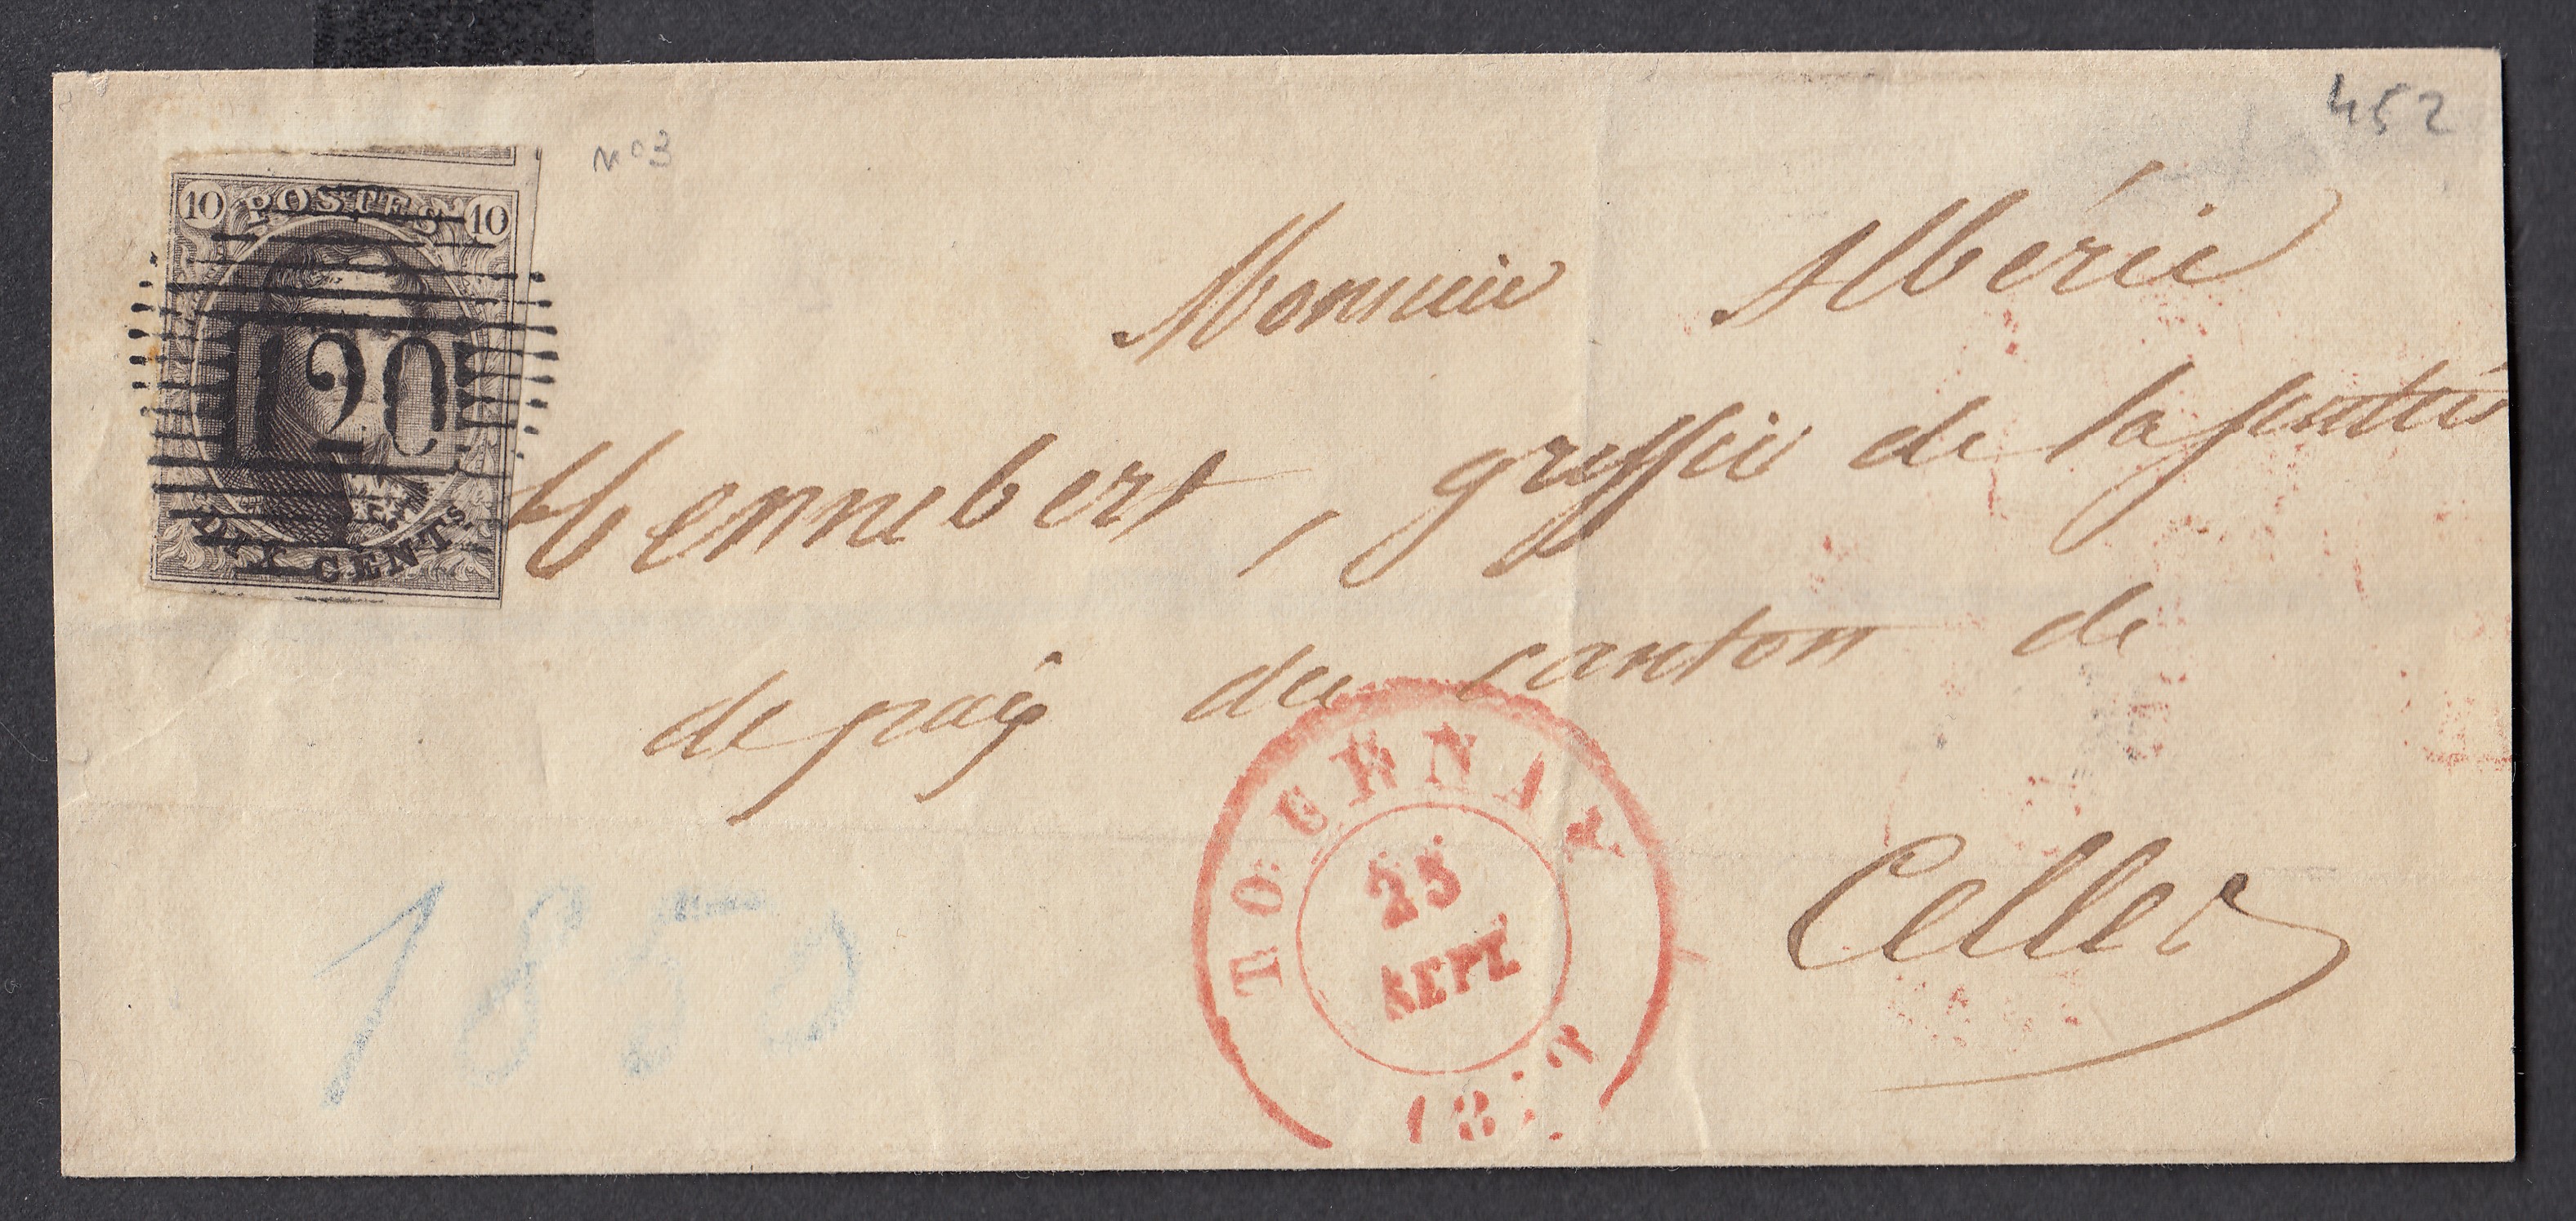 452
n° 3
10 POSTES 10
120
DIX CENTS.
Monsieur Albéric
Hennebert, greffier de la justice
de paix du canton de
Celles
TOURNAY
25
SEPT.
1850